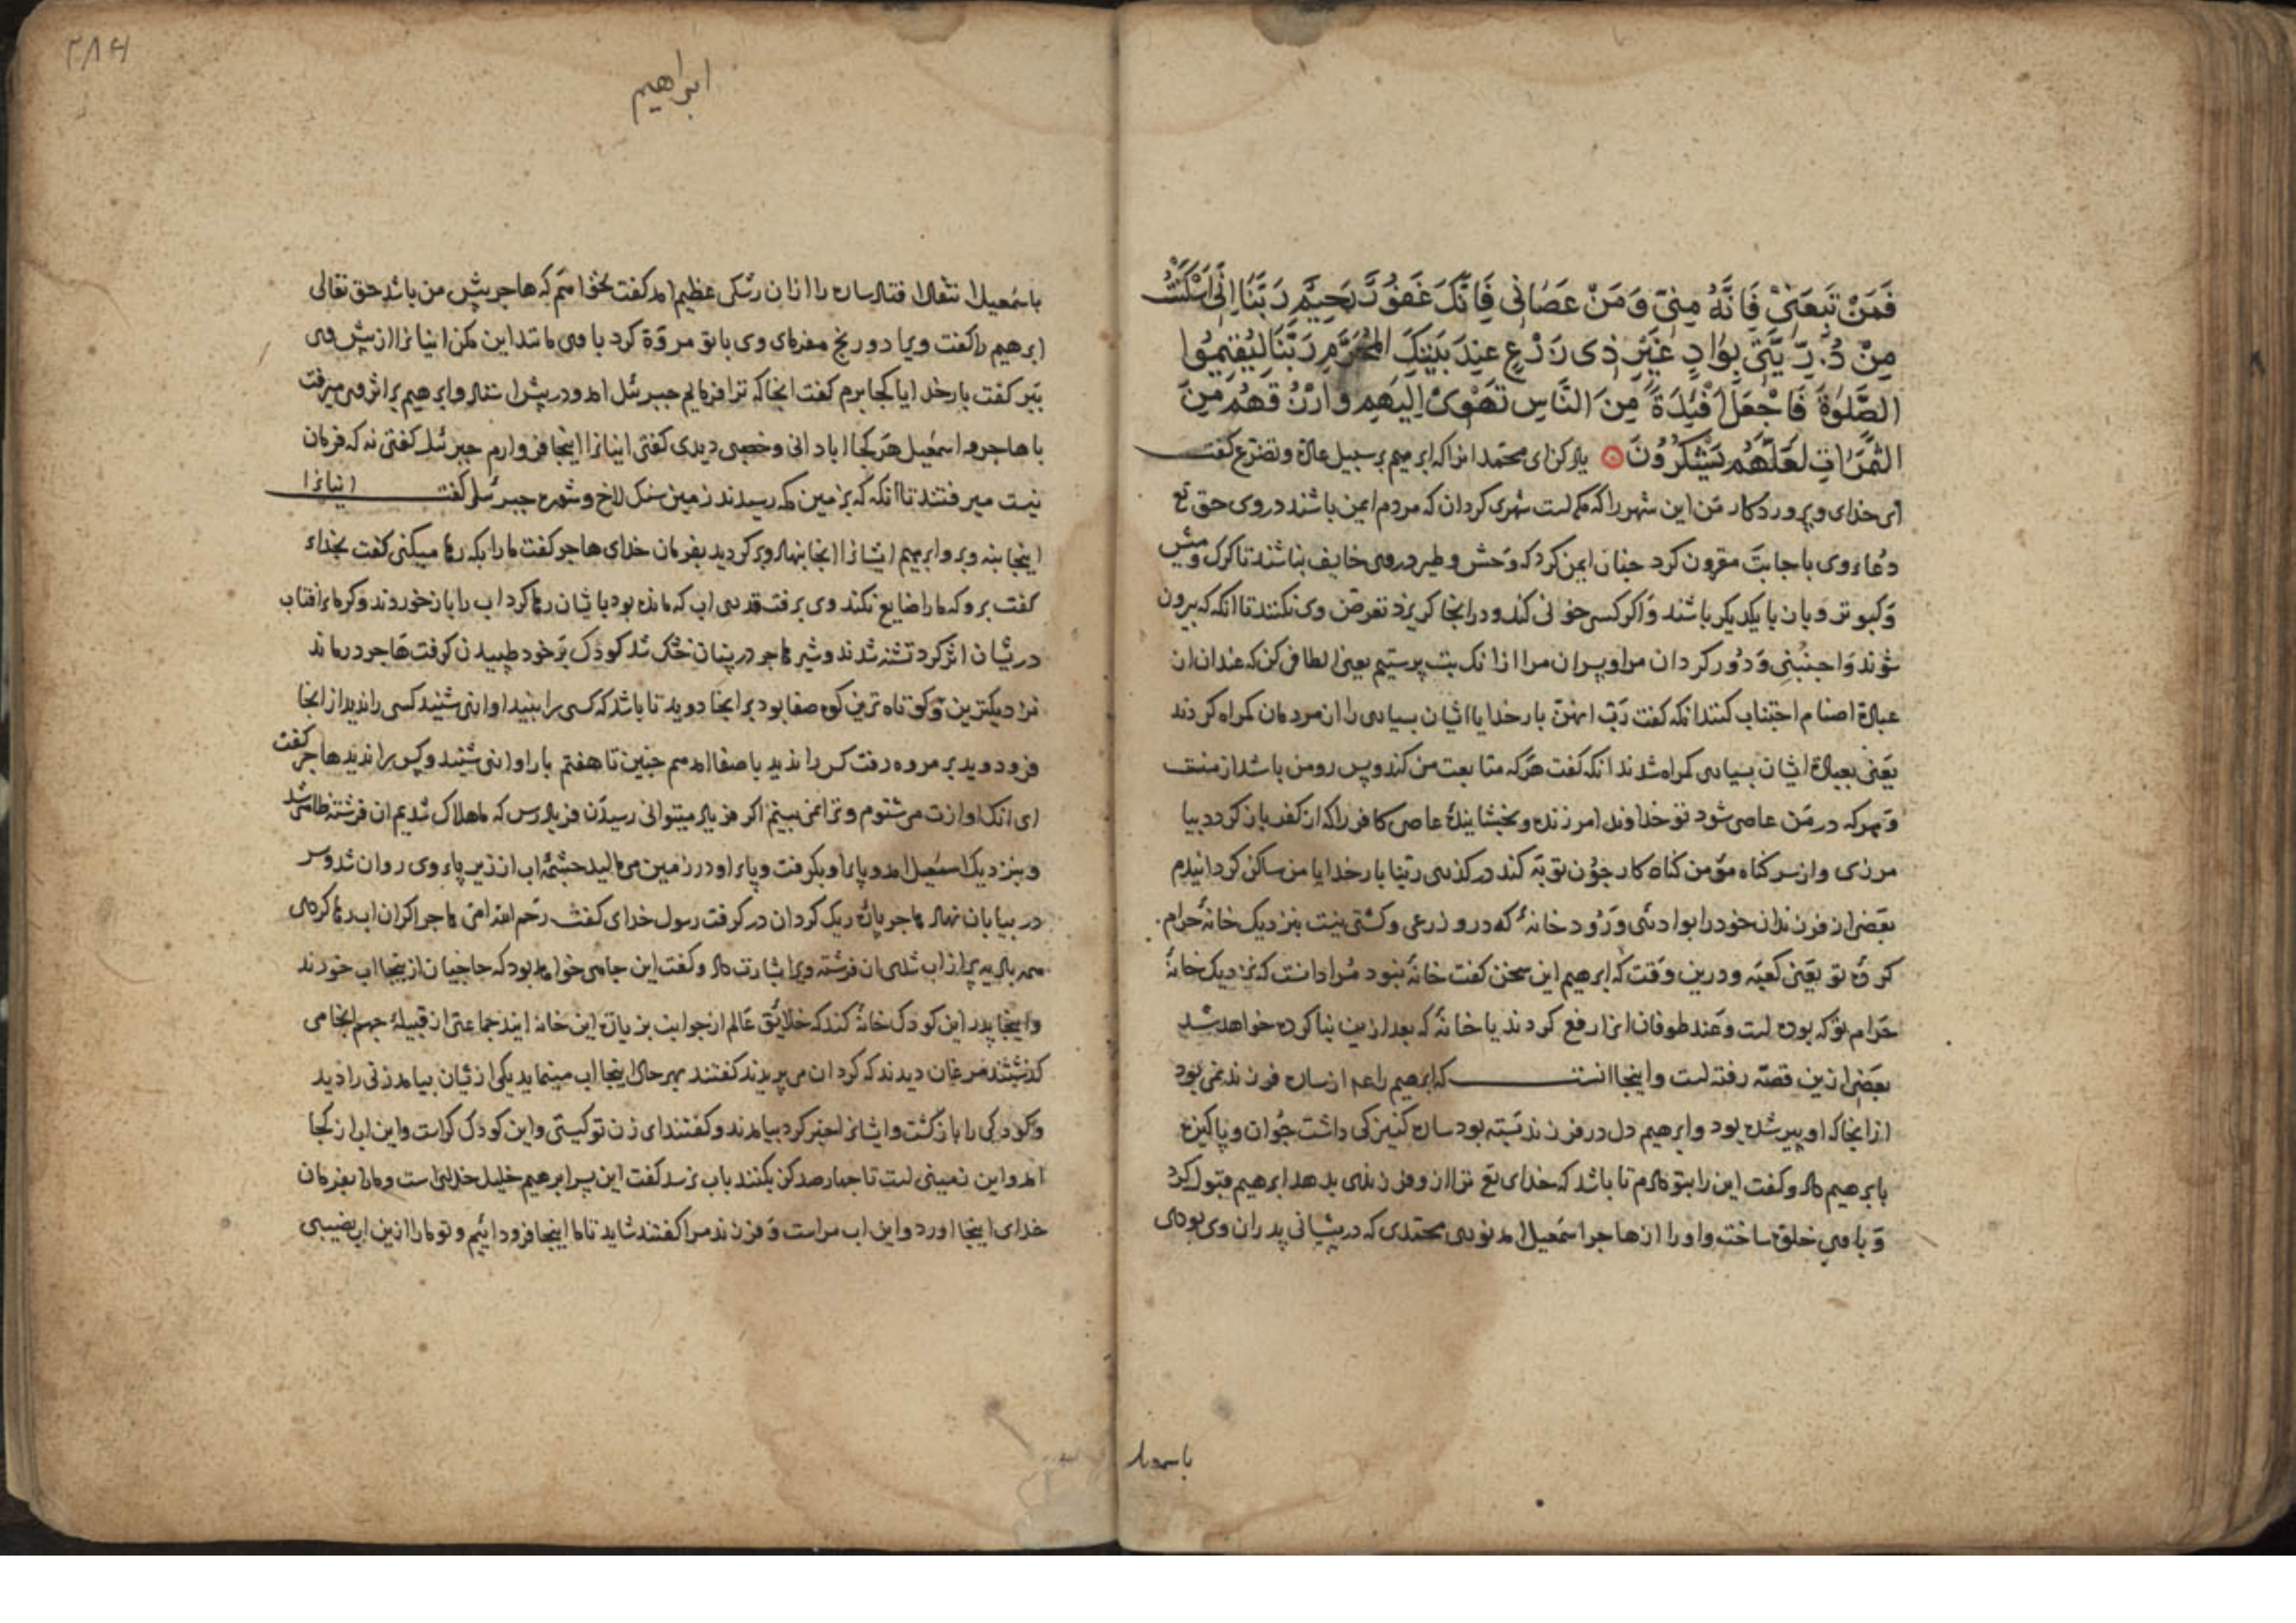 فَمَنْ تَبِعَنِیْ فَاِنَّهُ مِنِّیْ وَ مَنْ عَصَانِی فَاِنَّکَ غَفُوْرٌ رَحِیْمٌ رَبَّنَا اِنِّی اَسْکَنْتُ
مِنْ ذُرِّیَّتِیْ بِوَادٍ غَیْرِ ذِی زَرْعٍ عِندَ بَیْتِکَ الْمُحَرَّمِ رَبَّنَا لِیُقِیْمُوا
الصَّلوٰةَ فَاجْعَلْ اَفْئِدَةً مِنَ النَّاسِ تَهْوِیْ اِلَیْهِمْ وَارْزُقْهُمْ مِنَ
الثَّمَرَاتِ لَعَلَّهُمْ یَشْکُرُوْنَ یاد کن ای محمد انرا که ابرهیم بر سبیل و تضرع کفت
ای خدای و پروردکار من این شهر را که مکه است شهری کردان که مردم ایمن باشند در وی حق تع
دعاء وی باجابت مقرون کرد جنان ایمن کرد که وحش و طیر در وی خایف نباشند تا کرک و میش
و کبوتر و بان با یکدیکر باشند و اکر کسی خونی کند و در انجا کریزد تعرض وی نکنند تا انکه که بیرون
شوند وَاجْنُبْنِی و دور کردان مرا و پسران مرا از انک بت پرستیم یعنی الطافی کن که عند ان از
عبادة اصنام اجتناب کنند انکه کفت رَبِّ اِنَّهُنَّ بار خدایا ایشان بسیاری را از مردمان کمراه کردند
یعنی بعبادة ایشان بسیاری کمراه شدند انکه کفت هرکه متابعت من کند و پس رو من باشد از منست
و هرکه در من عاصی شود تو خداوند امرزنده و بخشاینده عاصی کافر را که از کفر باز کردد بیا
مرزی و از سر کناه مؤمن کناه کار جون توبه کند در کذری ربنا بار خدایا من ساکن کردانیدم
بعضی از فرزندان خود را بوادئی و رود خانۀ که درو زرعی و کشتی نیست بنزدیک خانۀ حرام
کردۀ تو یعنی کعبه و درین وقت که ابرهیم این سخن کفت خانۀ نبود مراد انست که نزدیک خانۀ
حرام تو که بوده است و عند طوفان انرا رفع کردند یا خانۀ که بعد ازین بنا کرده خواهد شد
بعضی ازین قصّه رفته است و اینجا انست که ابرهیم را از ساره فرزند نمی بود
از انجا که او پیر شده بود و ابرهیم دل در فرزند بسته بود ساره کنیزکی داشت جوان و پاکیزه
بابرهیم داد و کفت این را بتو دادم تا باشد که خدای تع ترا از و فرزندی بدهد ابرهیم قبول کرد
و با وی خلق ساخت و او را از هاجر اسمعیل امد نور محمدی که در پیشانی پدران وی بودی
ابراهیم
باسمعیل انتقال افتاد ساره را از ان رشکی عظیم امد کفت نخواهم که هاجر پیش من باشد حق تعالی
ابرهیم را کفت ویرا دو رنج مفرمای وی با تو مروّة کرد با وی مانند این مکن اینانرا از پیش وی
ببر کفت بار خدایا کجا برم کفت انجا که ترا فرمایم جبرئیل امد و در پیش استاد و ابرهیم بر اثر وی میرفت
با هاجر و اسمعیل هر کجا ابادانی و خصبی دیدی کفتی اینانرا اینجا فرو ارم جبرئیل کفتی نه که فرمان
نیست میرفتند تا انکه که بزمین مکه رسیدند زمین سنک لاخ و شوره جبرئیل کفت اینانرا
اینجا بنه و برو ابرهیم ایشانرا انجا بنهاد و بر کردید بفرمان خدای هاجر کفت مارا بکه رها میکنی کفت بخداء
کفت برو که مارا ضایع نکند وی برفت قدری اب که مانده بود بایشان رها کرد اب را بازخوردند و کرماء افتاب
در ایشان اثر کرد تشنه شدند و شیر هاجر در پستان خشک شد کودک بر خود طپیدن کرفت هاجر درماند
نزدیکترین و کوتاه ترین کوه صفا بود بر انجا دوید تا باشد که کسی را بیند یا اوازی شنید کسی را ندید از انجا
فرو دوید بر مروه رفت کس را ندید با صفا امد هم جنین تا هفتم بار اوازی شنید و کس را ندید هاجر کفت
ای انک اوازت می شنوم و ترا نمی بینم اکر فریاد میتوانی رسیدن فریادرس که ما هلاک شدیم ان فرشته ظاهر شد
و بنزدیک اسمعیل امد و پاء او بکرفت و پاء او در زمین می مالید جشمۀ اب از زیر پاء وی روان شد و سر
در بیابان نهاد هاجر پارۀ ریک کردان در کرفت رسول خدای کفت رحم الله امی هاجر اکر ان اب رها کردی
همه بادیه پر از اب شدی ان فرشته ویرا بشارت داد و کفت این جاهی خواهد بود که حاجیان ازینجا اب خورند
و اینجا پدر این کودک خانۀ کند که خلایق عالم از جوانب بزیارت این خانه ایند جماعتی از قبیلۀ جرهم انجا می
کذشتند مرغان دیدند که کرد ان می پریدند کفتند بهر حال اینجا اب مینماید یکی از ایشان بیامد زنی را دید
و کودکی را بازکشت و ایشانرا خبر کرد بیامدند و کفتند ای زن تو کیستی و این کودک کراست و این اب از کجا
امد و این زمینی است تا جهارصد کز بکنند باب نرسد کفت این پسر ابرهیم خلیل خدایست و مارا بفرمان
خدای اینجا اورد و این اب مراست و فرزند مرا کفتند شاید تا ما اینجا فرود ائیم و تو مارا ازین اب نصیبی